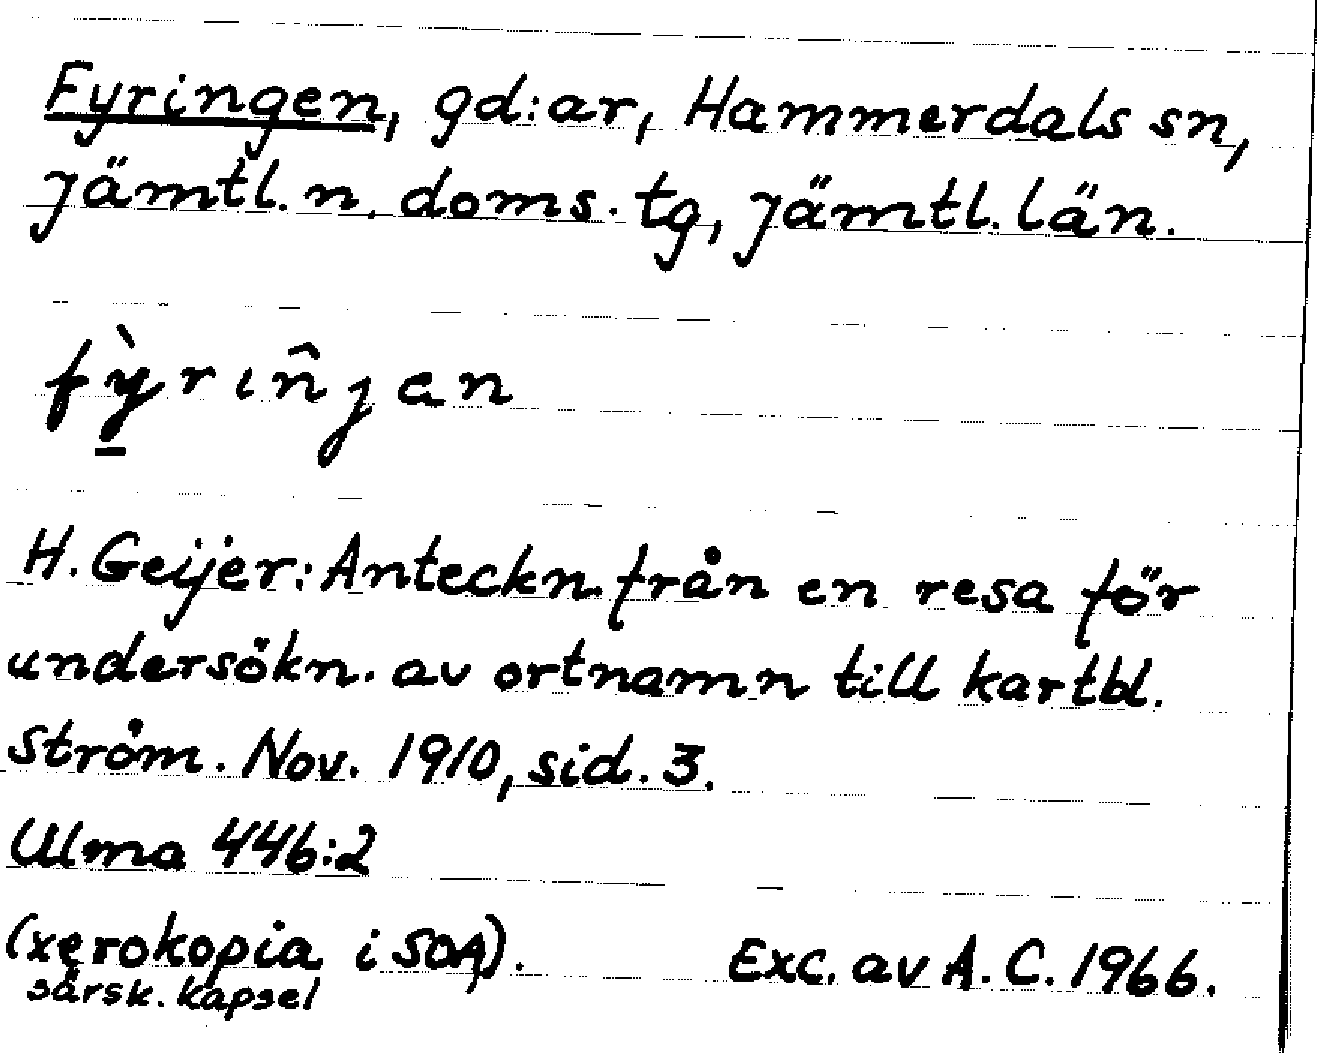 Fyringen, gd:ar, Hammerdals sn,
Jämtl. n. doms. tg, Jämtl. län.
fỳ̠rın̂ȷan
H. Geijer: Anteckn. från en resa för
undersökn. av ortnamn till kartbl.
Ström. Nov. 1910, sid. 3.
Ulma 446:2
(xerokopia i SOA). Exc. av A. C. 1966.
särsk. kapsel